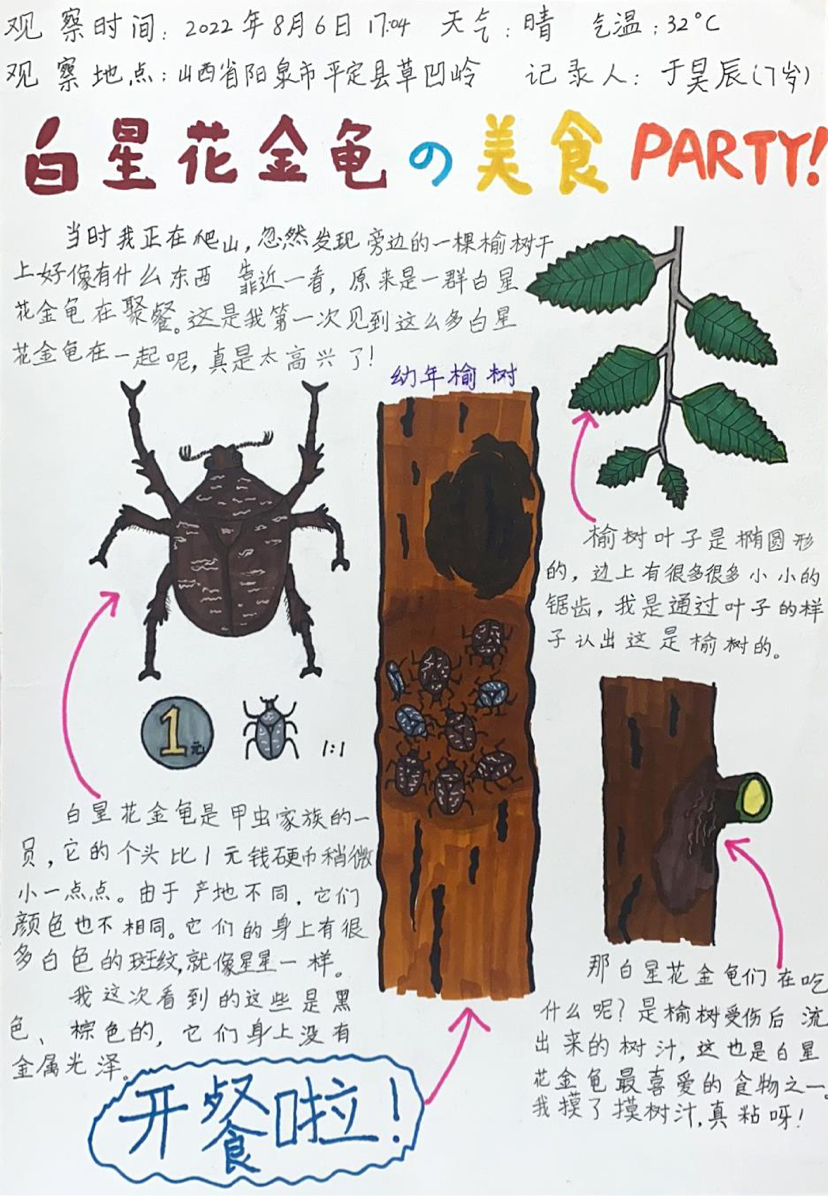 观察时间：2022年8月6日 17:04 天气：晴 气温：32°C
观察地点：山西省阳泉市平定县草凹岭 记录人：于昊辰（7岁）
白星花金龟の美食PARTY!
当时我正在爬山，忽然发现旁边的一棵榆树干
上好像有什么东西 靠近一看，原来是一群白星
花金龟在聚餐。这是我第一次见到这么多白星
花金龟在一起呢，真是太高兴了！
幼年榆树
榆树叶子是椭圆形
的，边上有很多很多小小的
锯齿，我是通过叶子的样
子认出这是榆树的。
1元
1:1
白星花金龟是甲虫家族的一
员，它的个头比1元钱硬币稍微
小一点点。由于产地不同，它们
颜色也不相同。它们的身上有很
多白色的斑纹，就像星星一样。
我这次看到的这些是黑
色、棕色的，它们身上没有
金属光泽。
那白星花金龟们在吃
什么呢？是榆树受伤后流
出来的树汁，这也是白星
花金龟最喜爱的食物之一。
我摸了摸树汁，真粘呀！
开餐啦！